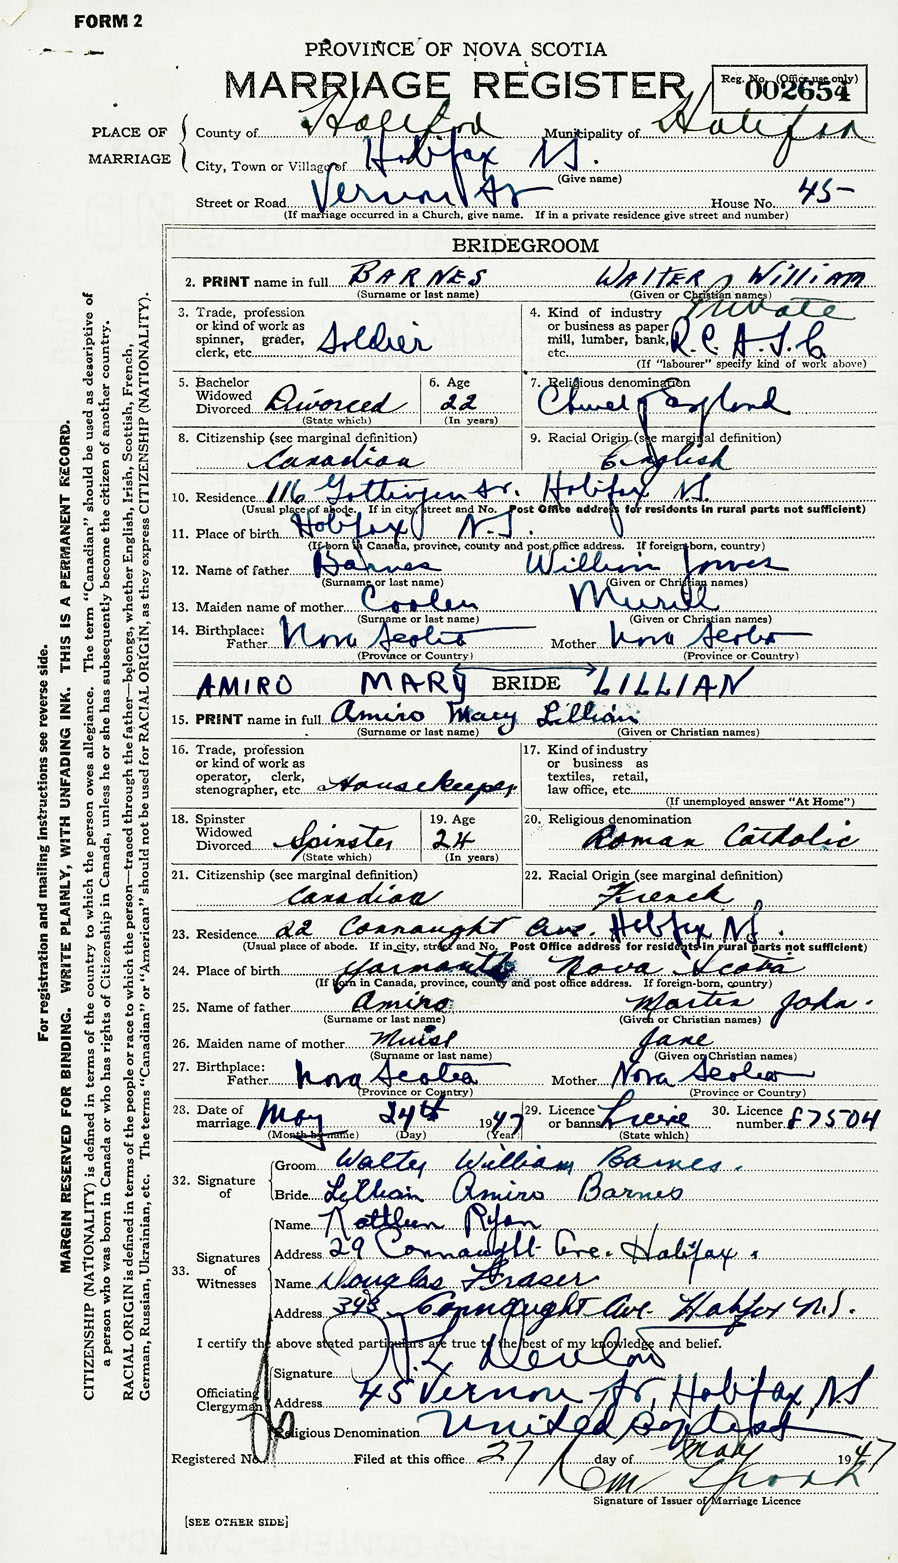 FORM 2
PROVINCE OF NOVA SCOTIA
MARRIAGE REGISTER
Reg. No. (Office use only)
002654
PLACE OF MARRIAGE
County of Halifax Municipality of Halifax
City, Town or Village of Halifax N.S.
(Give name)
Street or Road Vernon St House No. 45
(If marriage occurred in a Church, give name. If in a private residence give street and number)
BRIDEGROOM
2. PRINT name in full BARNES WALTER WILLIAM
(Surname or last name) (Given or Christian names)
3. Trade, profession or kind of work as spinner, grader, clerk, etc. Soldier
4. Kind of industry or business as paper mill, lumber, bank, etc. Private R.C.A.S.C.
(If "labourer" specify kind of work above)
5. Bachelor Widowed Divorced Divorced
(State which)
6. Age 22
(In years)
7. Religious denomination Church of England
8. Citizenship (see marginal definition) Canadian
9. Racial Origin (see marginal definition) English
10. Residence 116 Gottingen St. Halifax N.S.
(Usual place of abode. If in city, street and No. Post Office address for residents in rural parts not sufficient)
11. Place of birth Halifax N.S.
(If born in Canada, province, county and post office address. If foreign-born, country)
12. Name of father Barnes William James
(Surname or last name) (Given or Christian names)
13. Maiden name of mother Coolen
(Surname or last name) (Given or Christian names)
14. Birthplace: Father Nova Scotia Mother Nova Scotia
(Province or Country) (Province or Country)
AMIRO MARY BRIDE LILLIAN
15. PRINT name in full Amiro Mary Lillian
(Surname or last name) (Given or Christian names)
16. Trade, profession or kind of work as operator, clerk, stenographer, etc. Housekeeper
17. Kind of industry or business as textiles, retail, law office, etc.
(If unemployed answer "At Home")
18. Spinster Widowed Divorced Spinster
(State which)
19. Age 24
(In years)
20. Religious denomination Roman Catholic
21. Citizenship (see marginal definition) Canadian
22. Racial Origin (see marginal definition) French
23. Residence 22 Connaught Ave. Halifax N.S.
(Usual place of abode. If in city, street and No. Post Office address for residents in rural parts not sufficient)
24. Place of birth Yarmouth Nova Scotia
(If born in Canada, province, county and post office address. If foreign-born, country)
25. Name of father Amiro Martin John.
(Surname or last name) (Given or Christian names)
26. Maiden name of mother Muise Jane
(Surname or last name) (Given or Christian names)
27. Birthplace: Father Nova Scotia Mother Nova Scotia
(Province or Country) (Province or Country)
28. Date of marriage. May 24th 1947
(Month by name) (Day) (Year)
29. Licence or banns
(State which)
30. Licence number. F7504
32. Signature of
Groom Walter William Barnes.
Bride Lillian Amiro Barnes
33. Signatures of Witnesses
Name Kathleen Ryan
Address 29 Connaught Ave. Halifax.
Name Douglas Fraser
Address 343 Connaught Ave. Halifax N.S.
I certify the above stated particulars are true to the best of my knowledge and belief.
Officiating Clergyman
Signature
Address 45 Vernon St, Halifax, N.S
Religious Denomination United Baptist
Registered No. Filed at this office 27 day of May 1947
Signature of Issuer of Marriage Licence
[SEE OTHER SIDE]
For registration and mailing instructions see reverse side.
MARGIN RESERVED FOR BINDING. WRITE PLAINLY, WITH UNFADING INK. THIS IS A PERMANENT RECORD.
CITIZENSHIP (NATIONALITY) is defined in terms of the country to which the person owes allegiance. The term "Canadian" should be used as descriptive of
a person who was born in Canada or who has rights of Citizenship in Canada, unless he or she has subsequently become the citizen of another country.
RACIAL ORIGIN is defined in terms of the people or race to which the person—traced through the father—belongs, whether English, Irish, Scottish, French,
German, Russian, Ukrainian, etc. The terms "Canadian" or "American" should not be used for RACIAL ORIGIN, as they express CITIZENSHIP (NATIONALITY).